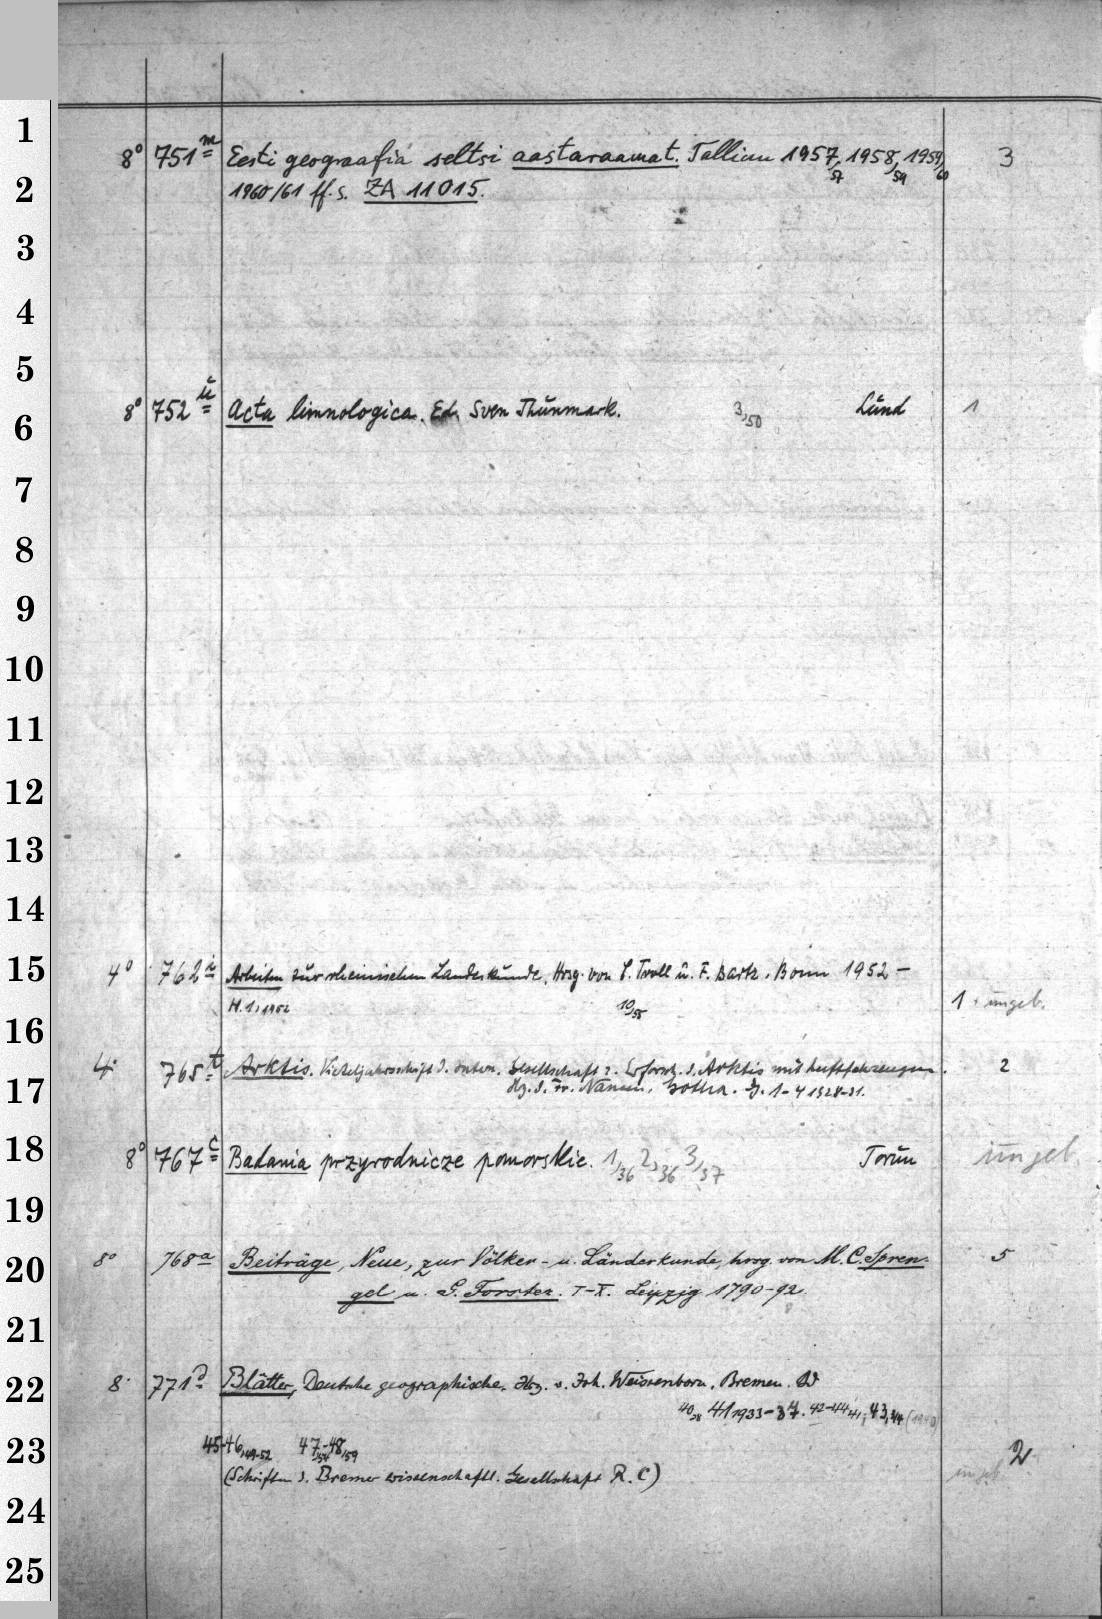 1
2
3
4
5
6
7
8
9
10
11
12
13
14
15
16
17
18
19
20
21
22
23
24
25
8° 751 m Eesti geograafia seltsi aastaraamat. Tallinn 1957/57, 1958/59, 1959/60 3
1960/61 ff. s. ZA 11015.
8° 752 ü Acta limnologica. Ed. Sven Thunmark. 3,50 Lund 1
4° 762 i Arbeiten zur rheinischen Landeskunde. Hrsg. von C. Troll u. F. Bartz. Bonn 1952 –
H. 1, 1952 10/55 1 ungeb.
4° 765 t Arktis. Vierteljahrsschrift d. intern. Gesellschaft z. Erforsch. d. Arktis mit Luftfahrzeugen. 2
Hg. d. Fr. Nansen. Gotha. J. 1-4 1928-31.
8° 767 c Badania przyrodnicze pomorskie. 1/36 2/36 3/37 Toruń ungeb.
8° 768 a Beiträge, Neue, zur Völker- u. Länderkunde, hrsg. von M. C. Spren- 5
gel u. G. Forster. I-X. Leipzig 1790-92.
8° 771 Blätter, Deutsche geographische. Hg. v. Joh. Weissenborn. Bremen.
41 1933-37. 42-44 43,3/4
45-46,49-52 47-48/59 2
(Schriften d. Bremer wissenschaftl. Gesellschaft R. C) ungeb.